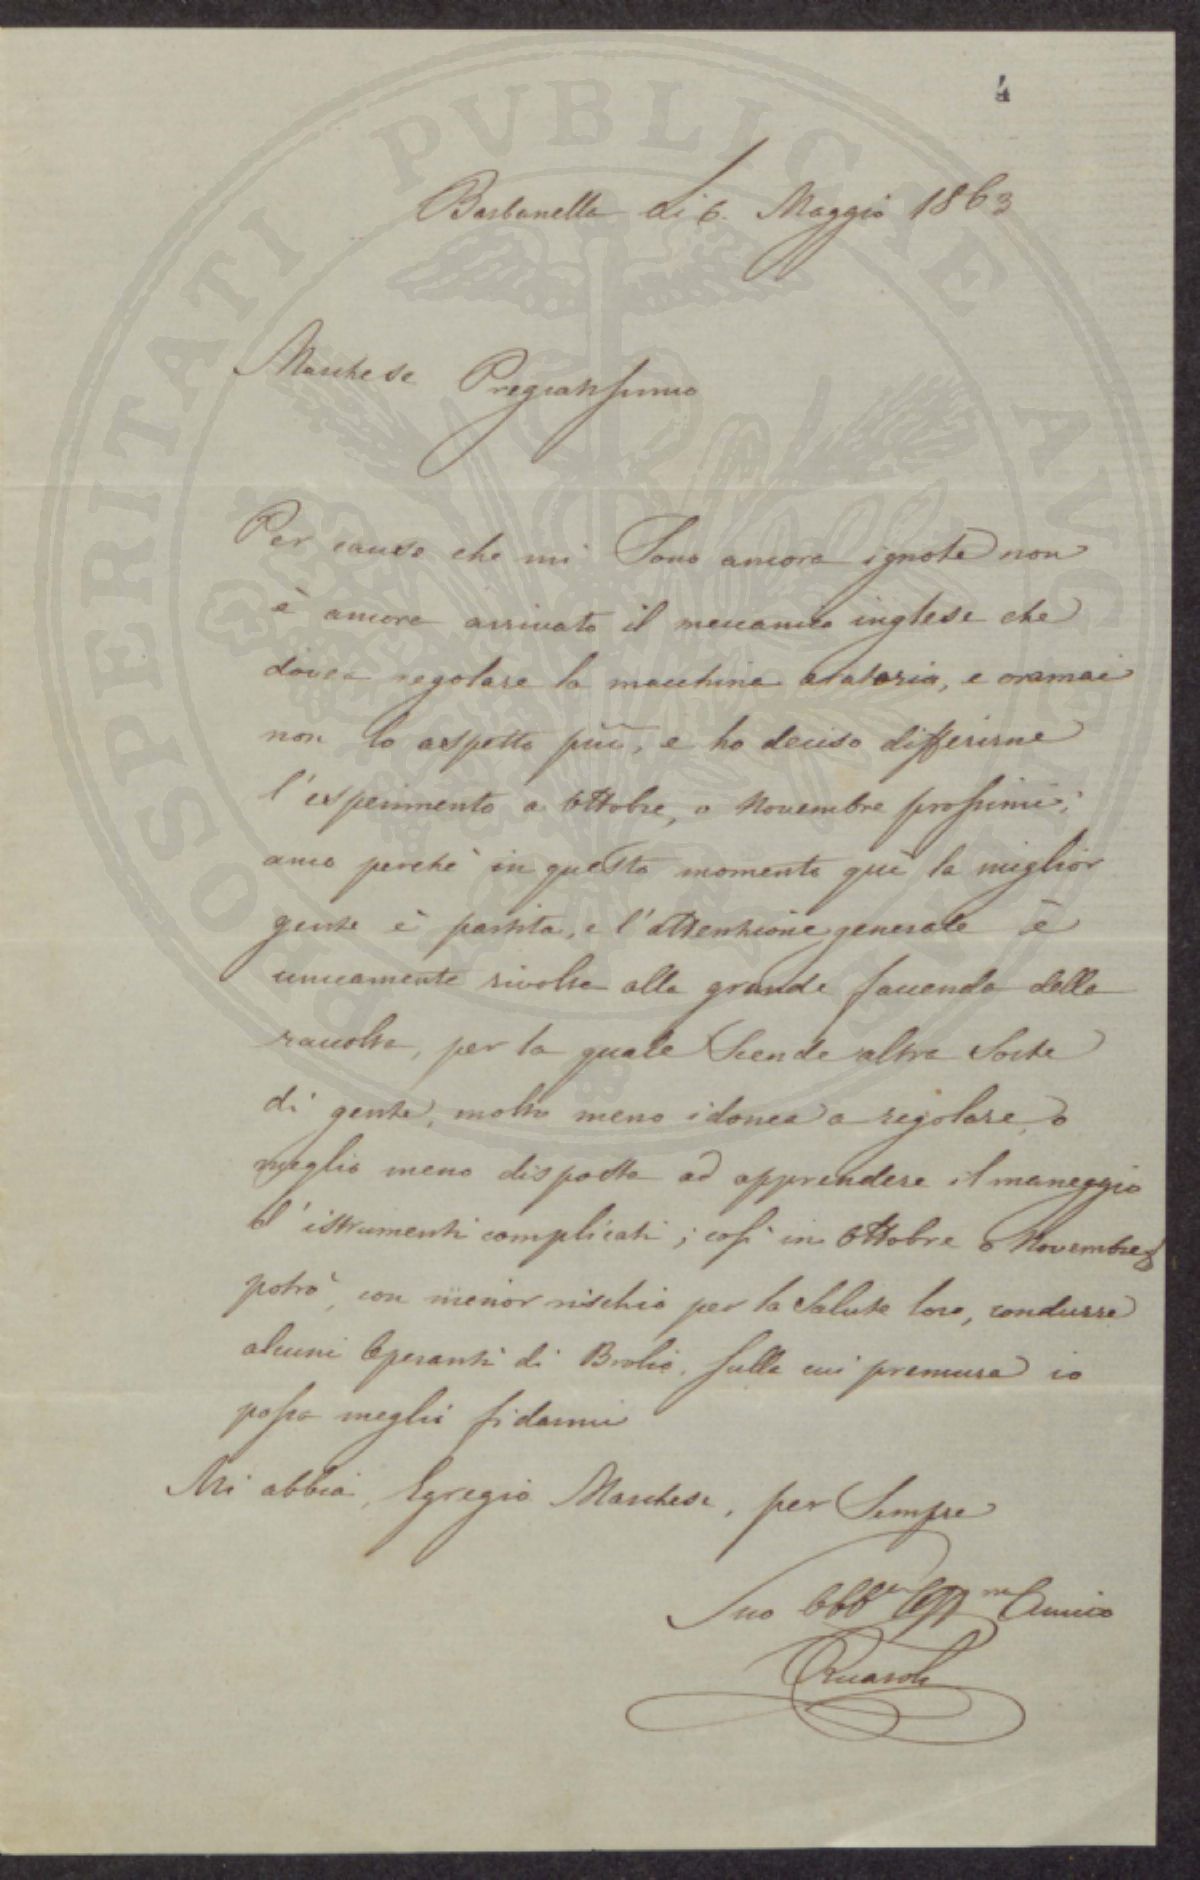 4
Barbanella di 6. Maggio 1863
Marchese Pregiatissimo
Per cause che mi sono ancora ignote non
è ancora arrivato il meccanico inglese che
dovea regolare la macchina aratoria, e oramai
non lo aspetto più, e ho deciso differirne
l'esperimento a Ottobre, o Novembre prossimi;
anco perchè in questo momento quì la miglior
gente è partita, e l'attenzione generale è
unicamente rivolta alla grande faccenda della
raccolta, per la quale scende altra sorte
di gente, molto meno idonea a regolare, o
meglio meno disposta ad apprendere il maneggio
d'istrumenti complicati; così in Ottobre o Novembre
potrò, con minor rischio per la salute loro, condurre
alcuni Operanti di Brolio, sulla cui premura io
posso meglio fidarmi
Mi abbia, Egregio Marchese, per sempre
Suo Obb Aff Amico
Ricasoli
PROSPERITATI PVBLICAE AVGENDAE